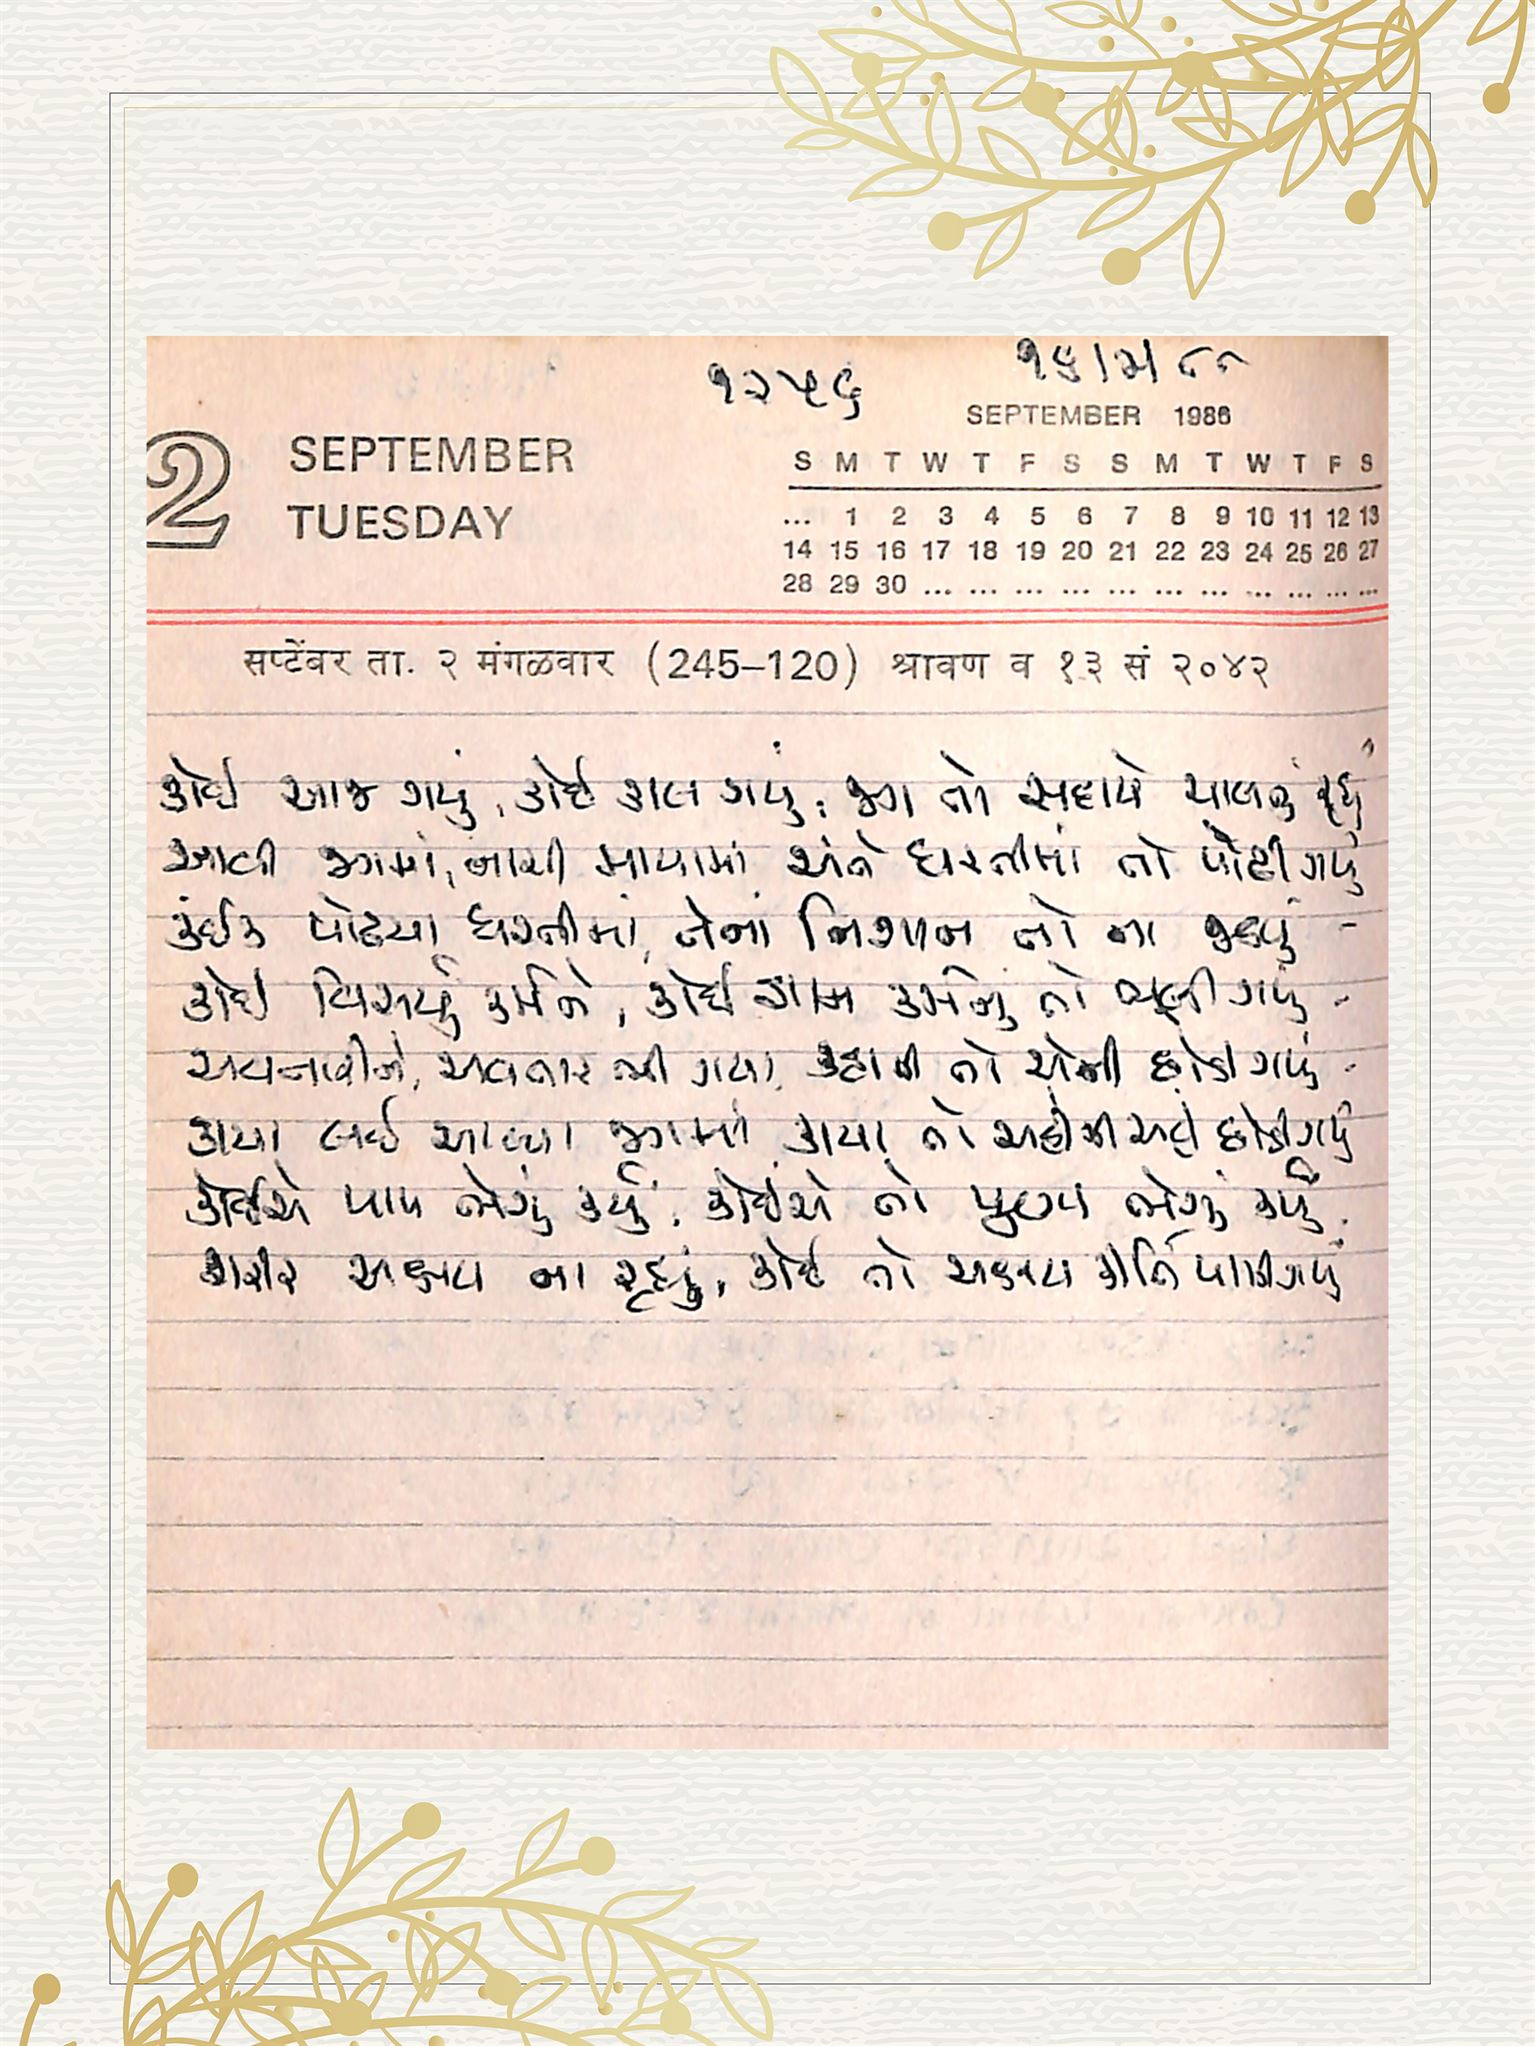 ૧૨૫૬
SEPTEMBER 1986
2 SEPTEMBER
TUESDAY
S M T W T F S S M T W T F S
... 1 2 3 4 5 6 7 8 9 10 11 12 13
14 15 16 17 18 19 20 21 22 23 24 25 26 27
28 29 30 ... ... ... ... ... ... ... ... ... ... ...
सप्टेंबर ता. २ मंगळवार (245–120) श्रावण व १३ सं २०४२
કોઈ આજ ગયું, કોઈ કાલ ગયું, જગ તો સદાયે ચાલતું રહ્યું
આવી જગમાં, નાચી માયામાં અંતે ધરતીમાં તો પોઢી ગયું
કંઈક પોઢયા ધરતીમાં, તેના નિશાન તો ના જડયું -
કોઈ વિસર્યું કર્મને, કોઈ કામ કર્મનું તો ભૂલી ગયું -
અવનવીને, અવતાર ગયા, કહાની તો એની છોડી ગયું -
કાયા લઈ આવ્યા જગમાં કાયા તો અહીંની અહીં છોડી ગયું
કોઈએ પાપ ભેગું કર્યું, કોઈએ તો પુણ્ય ભેગું કર્યું
શરીર અક્ષય ના રહ્યું, કોઈ તો અક્ષય કીર્તિ પામી ગયું